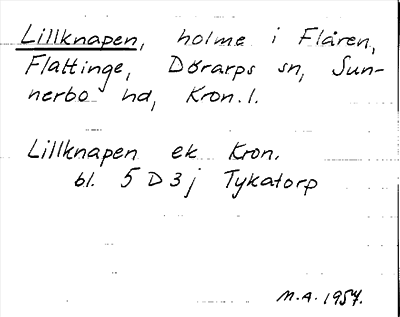 Lillknapen, holme i Flåren,
Flattinge, Dörarps sn, Sun-
nerbo hd, Kron. l.
Lillknapen ek Kron.
bl. 5 D 3 j Tykatorp
M.A. 1957.